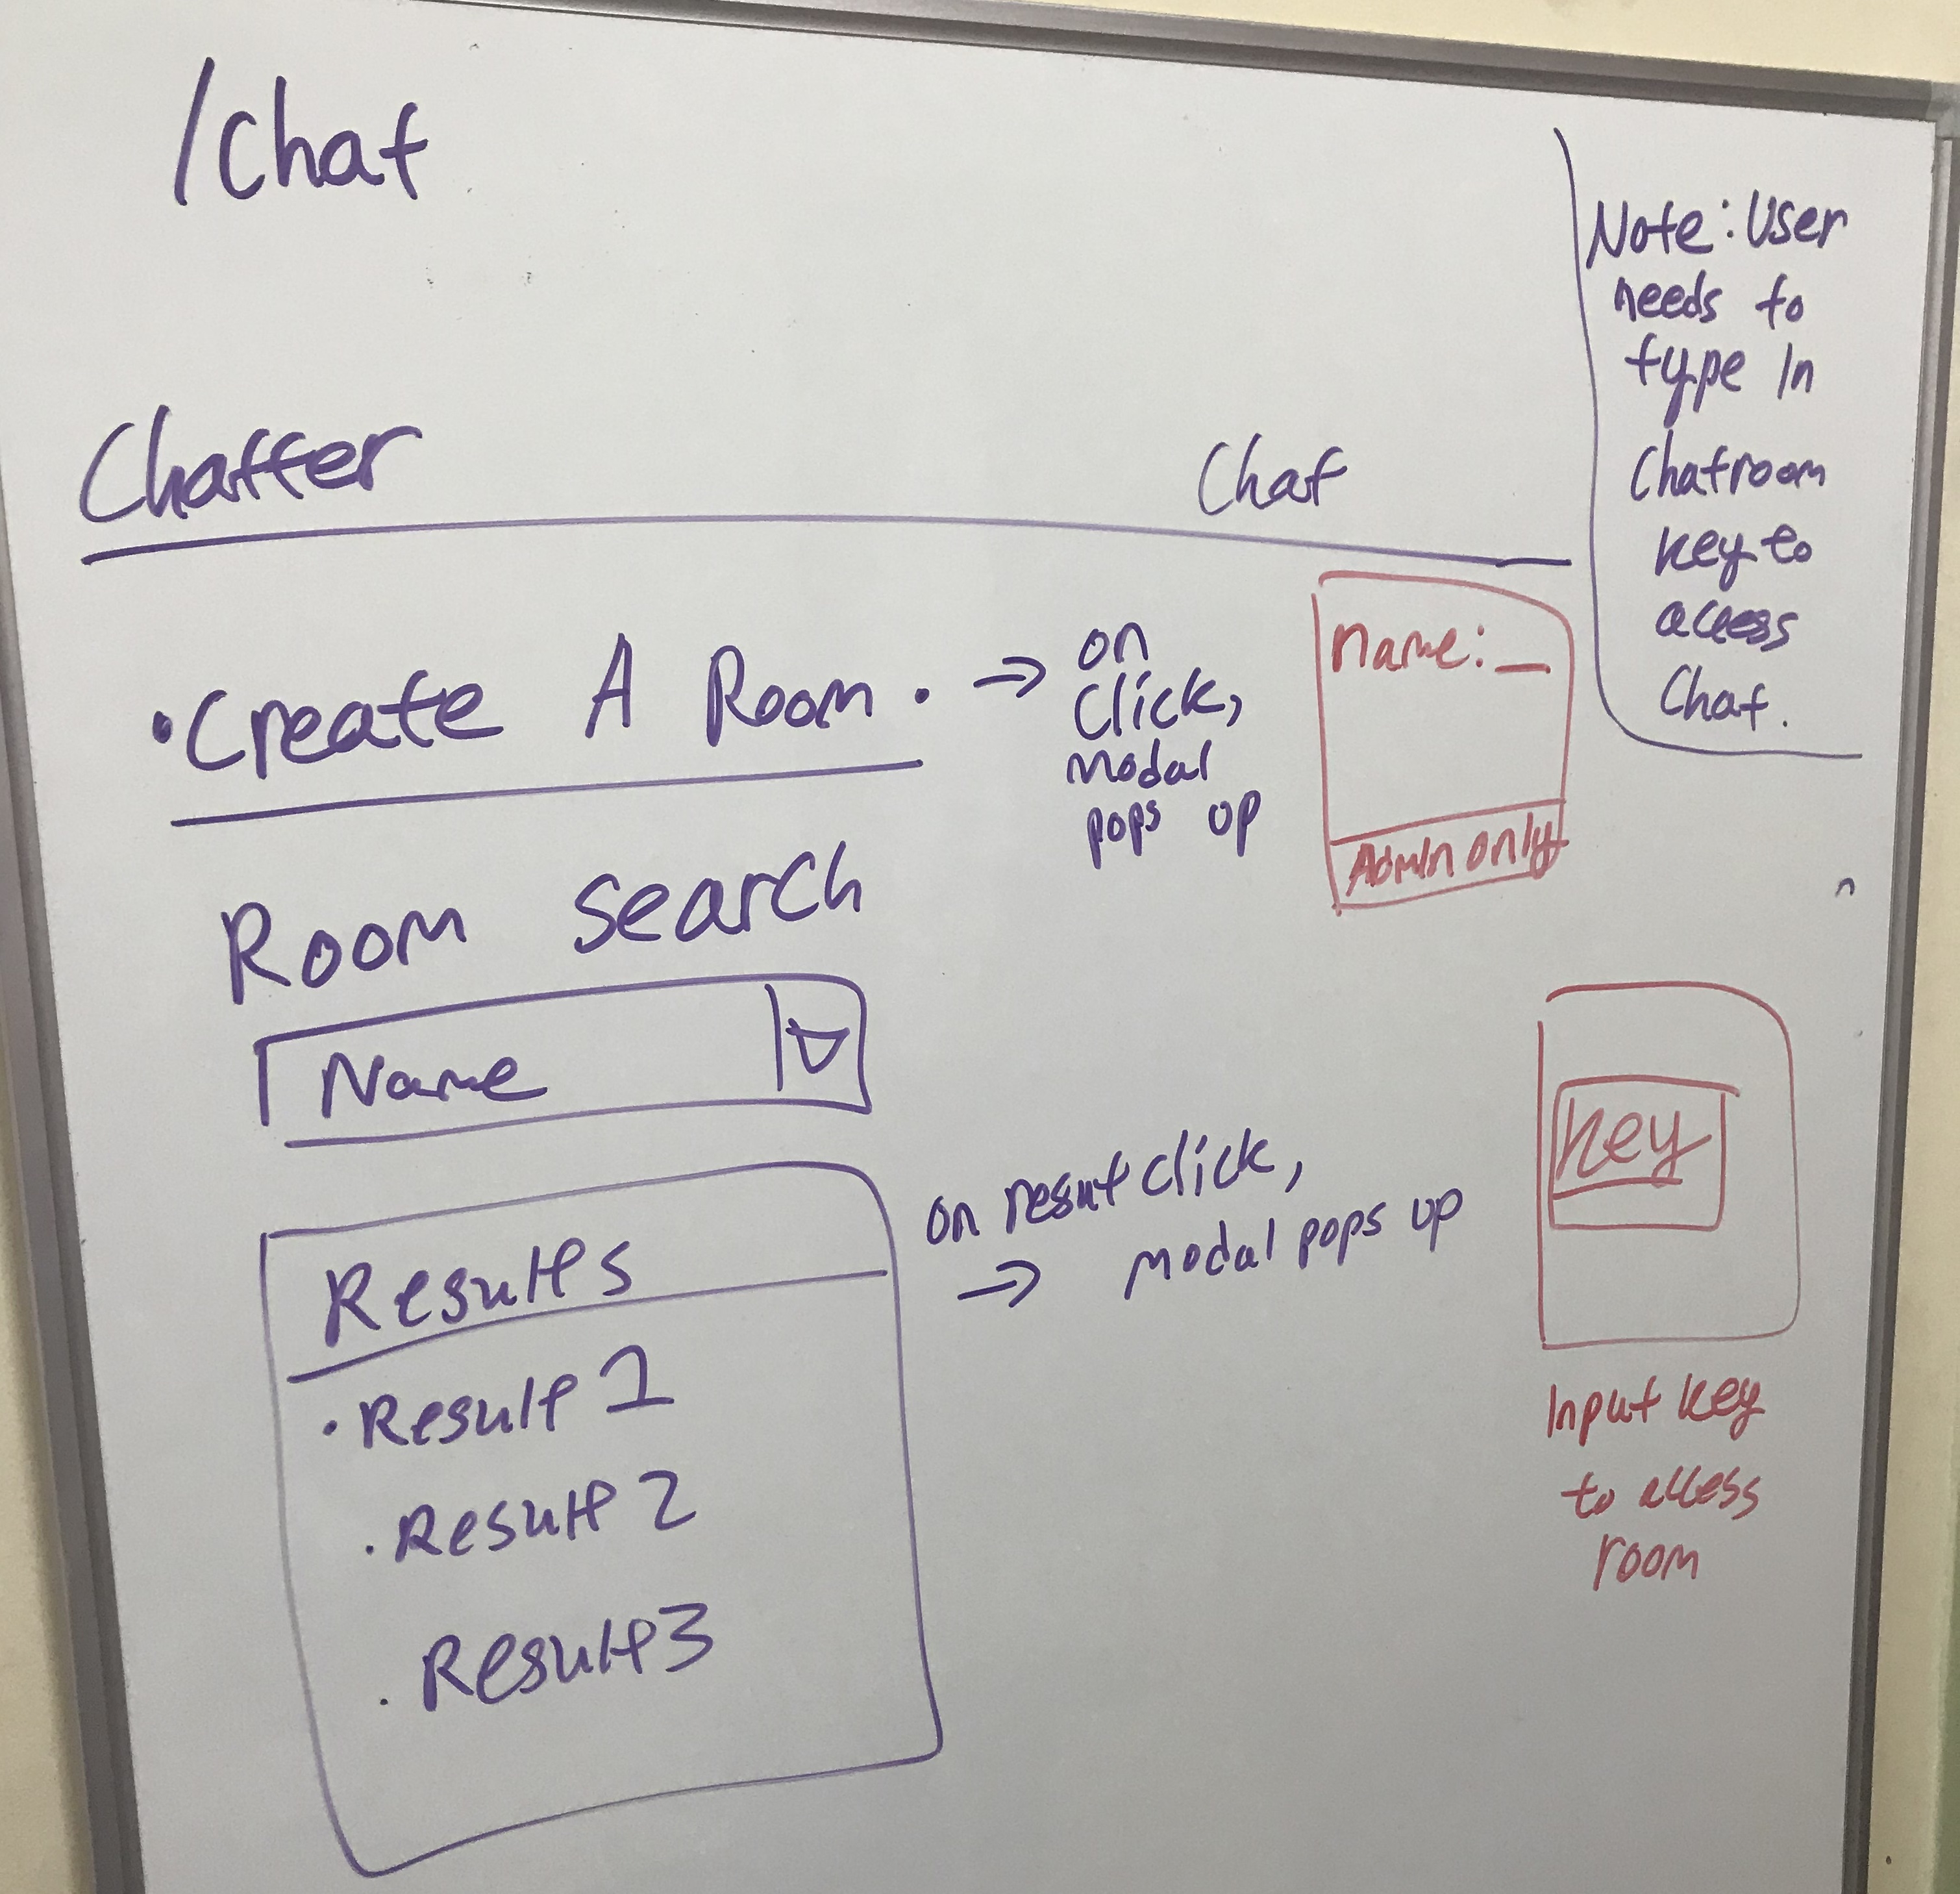 /Chat
Note: User
needs to
type in
Chatroom
key to
access
Chat.
Chatter
Chat
• Create A Room . → on
click,
modal
pops up
name: _
Admin only
Room search
Name
Results
• Result 1
• Result 2
• Result 3
on resut click,
→ modal pops up
key
Input key
to access
room